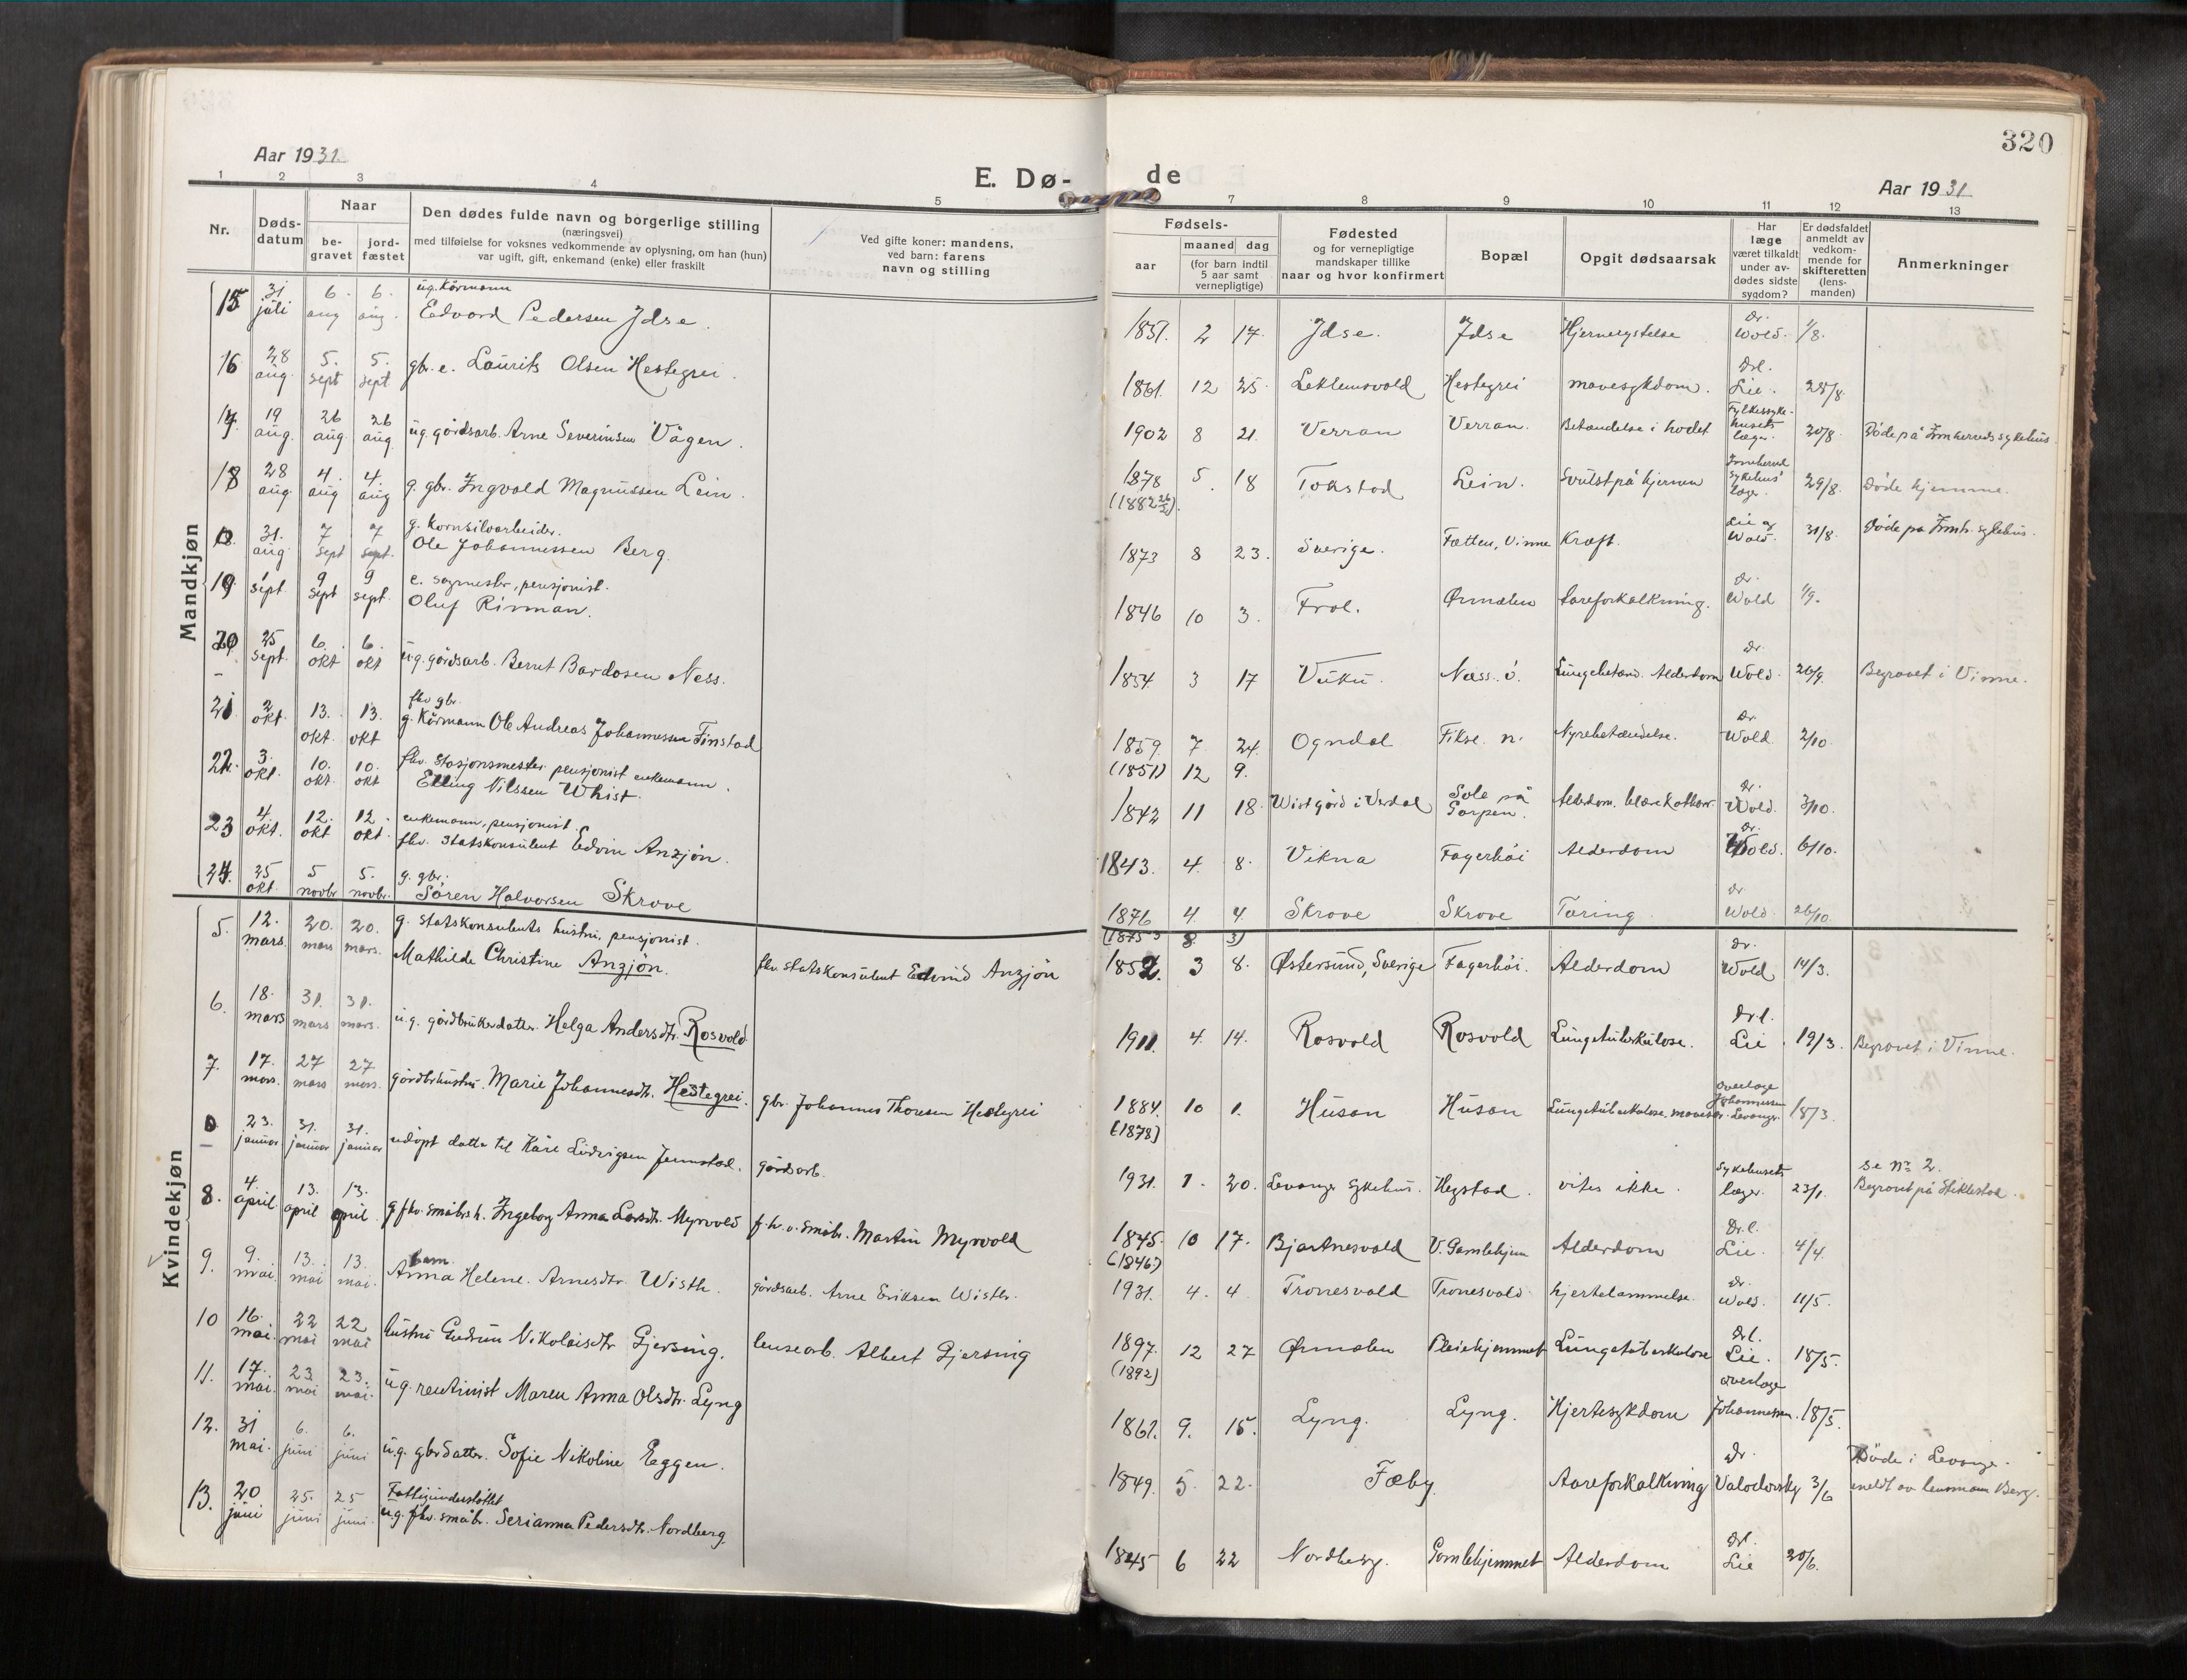 320
Aar 1931
E. Dø-
de
Aar 1931
1 2 3 4 5 7 8 9 10 11 12 13
Nr.
Døds-
datum
Naar
be-
gravet
jord-
fæstet
Den dødes fulde navn og borgerlige stilling
(næringsvei)
med tilføielse for voksnes vedkommende av oplysning, om han (hun)
var ugift, gift, enkemand (enke) eller fraskilt
Ved gifte koner: mandens,
ved barn: farens
navn og stilling
Fødsels-
aar
maaned dag
(for barn indtil
5 aar samt
vernepligtige)
Fødested
og for vernepligtige
mandskaper tillike
naar og hvor konfirmert
Bopæl
Opgit dødsaarsak
Har
læge
været tilkaldt
under av-
dødes sidste
sygdom?
Er dødsfaldet
anmeldt av
vedkom-
mende for
skifteretten
(lens-
manden)
Anmerkninger
Mandkjøn
15 31 juli 6. aug 6. aug. ug. Kårmann
Edvard Pedersen Idse. 1851. 2 17. Idse. Idse Hjernerystelse Dr. Wold. 1/8.
16 28 aug. 5. sept 5. sept gbr. e. Laurits Olsen Hestegrei. 1861. 12 25. Leklemsvald Hestegrei mavesykdom. Drl. Lie. 28/8.
17 19 aug. 26 aug 26 aug ug. gårdsarb. Arne Severinsen Vågen. 1902 8 21. Verran Verran. Betændelse i hodet Fylkessyke-
husets
læger. 20/8. Døde på Innherreds sykehus.
18 28 aug. 4. aug 4. aug g. gbr. Ingvald Magnussen Lein. 1878 5. 18 Tokstad Lein. Svulst på hjernen Innherred
sykehus'
læger. 29/8. Døde hjemme.
(1882
31. aug 7 sept 7 sept. g. kornsiloarbeider.
Ole Johannessen Berg. 1873 8 23. Sverige. Fætten, Vinne Kræft. Lie og
Wold. 31/8. Døde på Innh. sykehus.
19 1 sept. 9 sept 9 sept. e. sagmester, pensjonist.
Oluf Rinman. 1846 10 3. Frol. Ørmelen Åreforkalkning. Dr. Wold 1/9.
20 25 sept. 6. okt 6. okt ug. gårdsarb. Bernt Bardosen Ness. 1854. 3 17 Vuku. Næss. ö. Lungebetænd. Alderdom Dr. Wold. 26/9. Begravet i Vinne.
21 2 okt. 13. okt. 13. okt fhv gbr.
g. Kårmann Ole Andreas Johannessen Finstad 1859. 7. 24. Ogndal Fikse. n. Nyrebetændelse. Dr. Wold. 2/10.
(1851) 12 9.
22. 3. okt. 10. okt. 10. okt fhv. Stasjonsmester pensjonist enkemann.
Elling Nilssen Whist. 1842 11 18. Wist gård i Verdal Sole på
Garpen. Alderdom. blærekatharr. Dr. Wold. 3/10.
23 4. okt. 12. okt 12. okt. enkemann, pensjonist.
fhv. Statskonsulent Edvin Anzjön. 1843. 4. 8. Vikna Fagerhöi Alderdom Dr. Wold. 6/10.
24. 25 okt. 5 novbr 5. novbr. g. gbr.
Søren Halvorsen Skrove 1876 4 4. Skrove Skrove Tæring Dr. Wold. 26/10.
(1875 8 3)
Kvindekjøn
5. 12. mars. 20. mars 20. mars. g. statskonsulents hustru, pensjonist.
Mathilde Christine Anzjön. fhv. statskonsulent Edvind Anzjön 1852. 3 8. Østersund, Sverige Fagerhöi. Alderdom Dr. Wold 14/3.
6. 18. mars 31. mars 31. mars. ug. gårdbrukerdatter. Helga Andersdtr. Rosvold 1911. 4. 14. Rosvold Rosvold Lungetuberkulose. Drl. Lie 19/3. Begravet i Vinne.
7. 17. mars. 27 mars 27 mars. gårdbrhustru. Marie Johannesdtr. Hestegrei. gbr. Johannes Thoresen Hestegrei 1884. 10 1. Husan Husan Lungetuberkulose, mavesår. overlæge
Johannessen
Levanger. 18/3.
(1878)
23. januar 31. januar 31. januar udöpt datter til Kåre Ludvigsen Jermstad. gårdsarb. 1931. 1. 20. Levanger sykehus. Hegstad. vites ikke. Sykehusets
læger. 23/1. se nr. 2.
Begravet på Stiklestad.
8. 4. april. 13. april 13. april. g. fhv. småbrh. Ingeborg Anna Larsdtr. Myrvold f.h.v. småbr. Martin Myrvold 1845. 10 17. Bjartnesvald V. Gamlehjem Alderdom Dr.l. Lie. 4/4.
(1846?)
9. 9. mai. 13. mai 13. mai. barn.
Anna Helene. Arnesdtr. Wisth. gårdsarb. Arne Eriksen Wisth. 1931. 4. 4 Tronesvald Tronesvald. hjertelammelse. Dr. Wold. 11/5.
10 16. mai. 22 mai 22 mai hustru Gudrun Nikolaisdtr Gjersing. lensearb. Albert Gjersing 1897. 12 27 Ørmelen Pleiehjemmet Lungetuberkulose Drl. Lie. 18/5.
(1892)
11. 17. mai. 23 mai 23. mai. ug. rentinist Maren Anna Olsdtr. Lyng 1861. 9. 15. Lyng. Lyng. Hjertesykdom overlæge
Johannessen. 18/5.
12. 31 mai. 6. juni 6. juni ug. gbrdatter. Sofie Nikoline Eggen. 1849. 5. 22. Fæby. Aareforkalkning Dr 3/6 Døde i Levanger.
meldt av lensmann Berg.
13. 20 juni 25. juni 25 juni. Fattigunderstøttet
ug. fhv. småbr. Serianna Pedersdtr. Nordberg. 1845 6 22 Nordberg. Gamlehjemmet Alderdom Drl. Lie 20/6.